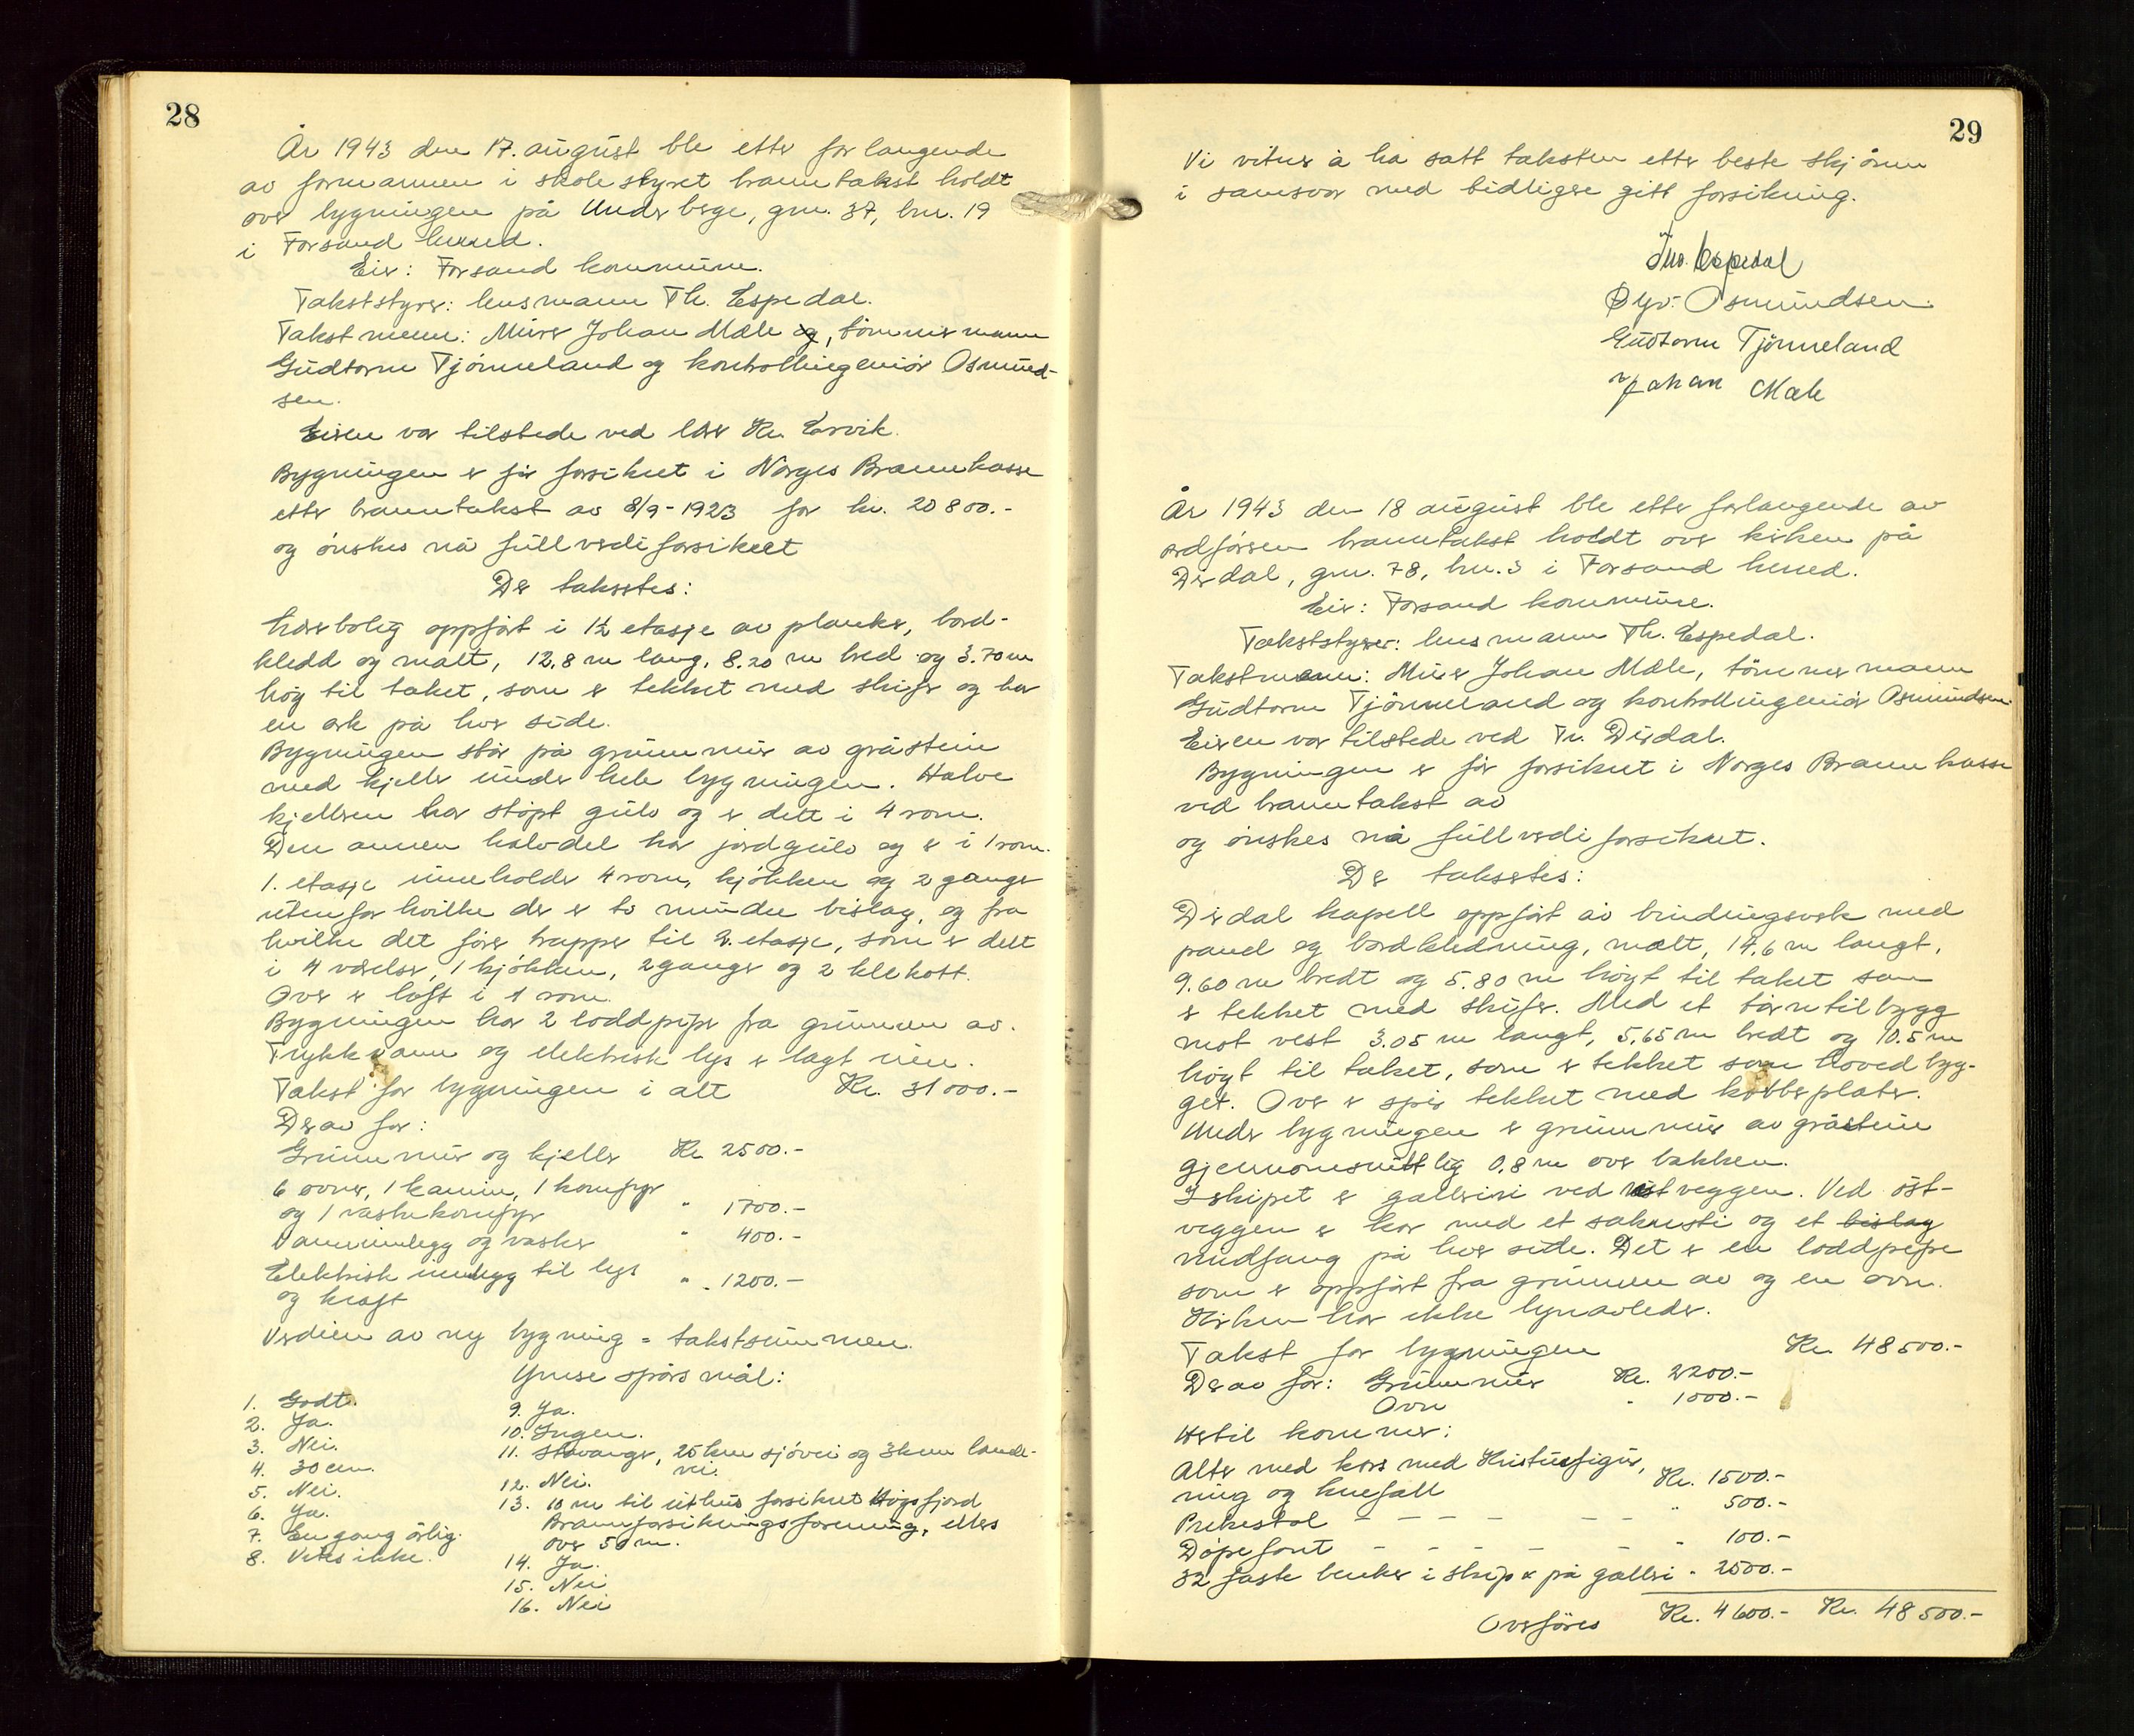 28
År 1943 den 17. august ble etter forlangende
av formannen i skolestyret branntakst holdt
over bygningen på Underberge, gnr. 37, bnr. 19
i Forsand herred.
Eier: Forsand kommune.
Takststyrer: lensmann Th. Espedal.
Takstmenn: Murer Johan Mæle og, tömmermann
Gudtorm Tjönneland og kontrollingeniör Osmund-
sen.
Eieren var tilstede ved lærer Kr. Ervik.
Bygningen er för forsikret i Norges Brannkasse
etter branntakst av 8/9-1923 for kr. 20800.-
og önskes nå fullverdiforsikret
Der takseres:
Lærerbolig oppfört i 1½ etasje av planker, bord-
kledd og malt, 12,8 m lang, 8.20 m bred og 3.70 m
höy til taket, som er tekket med skifer og har
en ark på hver side.
Bygningen står på grunnmur av gråstein
med kjeller under hele bygningen. Halve
kjelleren har stöpt gulv og er delt i 4 rom.
Den annen halvdel har jordgulv og er i 1 rom.
1. etasje inneholder 4 rom, kjökken og 2 ganger
utenfor hvilke der er to mindre bislag, og fra
hvilke det förer trapper til 2. etasje, som er delt
i 4 værelser, 1 kjökken, 2 ganger og 2 klekott.
Over er loft i 1 rom.
Bygningen har 2 loddpiper fra grunnen av.
Trykkvann og elektrisk lys er lagt inn.
Takst for bygningen i alt Kr. 31000.-
Derav for:
Grunnmur og kjeller Kr 2500.-
6 ovner, 1 kamin, 1 komfyr
og 1 vaskekomfyr " 1700.-
Vanninnlegg og vasker " 400.-
Elektrisk innlegg til lys " 1200.-
og kraft
Verdien av ny bygning = takstsummen.
Ymse spörsmål:
1. Godt.
2. Ja.
3. Nei.
4. 30 cm.
5. Nei.
6. Ja.
7. En gang årlig.
8. Vites ikke.
9. Ja.
10. Ingen.
11. Stavanger, 25 km sjövei og 3 km lande-
vei.
12. Nei.
13. 10 m til uthus forsikret Högsfjord
Brannforsikringsforening, ellers
over 50 m.
14. Ja.
15. Nei
16. Nei
29
Vi vitner å ha satt taksten etter beste skjönn
i samsvar med tidligere gitt forsikring.
Espedal
Osmundsen
Gudtorm Tjönneland
Johan Mæle
År 1943 den 18 august ble etter forlangende av
ordföreren branntakst holdt over kirken på
Dirdal, gnr. 78, bnr. 3 i Forsand herred.
Eier: Forsand kommune.
Takststyrer: lensmann Th. Espedal.
Takstmenn: Murer Johan Mæle, tömmermann
Gudtorm Tjönneland og kontrollingeniör Osmundsen.
Eieren var tilstede ved Tr. Dirdal.
Bygningen er för forsikret i Norges Brannkasse
ved branntakst av
og önskes nå fullverdiforsikret.
Der takseres:
Dirdal kapell oppfört av bindingsverk med
panel og bordkledning, malt, 14,6 m langt,
9.60 m bredt og 5.80 m höyt til taket som
er tekket med skifer. Med et tårntilbygg
mot vest 3.05 m langt, 5,65 m bredt og 10.5 m
höyt til taket, som er tekket som hovedbyg-
get. Over er spir tekket med kobberplater.
Under bygningen er grunnmur av gråstein
gjennomsnittlig 0,8 m over bakken.
I skipet er galleri ved vestveggen. Ved öst-
veggen er kor med et sakristi og et bislag
vindfang på hver side. Det er en loddpipe
som er oppfört fra grunnen av og en ovn.
Kirken har ikke lynavleder.
Takst for bygningen Kr. 48500.-
Derav for: Grunnmur Kr. 2200.-
Ovn " 1000.-
Hertil kommer:
Alter med kors med Kristusfigur,
ring og knefall Kr. 1500.-
Prekestol " 500.-
Döpefont " 100.-
32 faste benker i skip & på galleri " 2500.-
Overföres Kr. 4600.- Kr. 48500.-